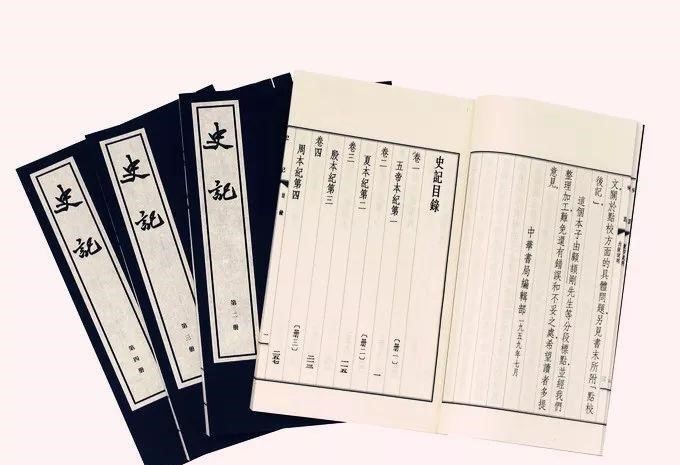 史記
第四册
史記
第三册
史記
第二册
文關於點校方面的具體問題另見書末所附「點校
後記」。
這個本子由顧頡剛先生等分段標點並經我們
整理加工難免還有錯誤和不妥之處希望讀者多提
意見。
中華書局編輯部一九五九年七月
史記目錄
卷一
五帝本紀第一
〔册一〕
一
卷二
夏本紀第二
〔册二〕
卷三
殷本紀第三
卷四
周本紀第四
〔册三〕